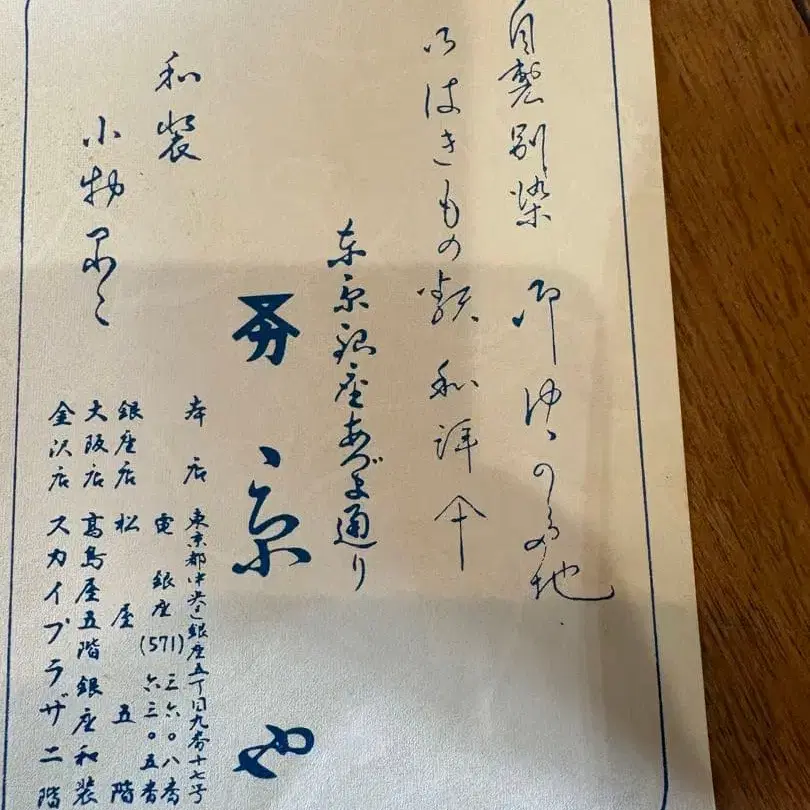 自製別染 御ゆかた地
御はきもの類 和洋傘
東京銀座あづま通り
和装
小物品々
本店 東京都中央区銀座五丁目九番十七号
電 銀座(571)三六〇八番
六三〇五番
銀座店 松屋五階
大阪店 髙島屋五階銀座和装
金沢店 スカイプラザ二階